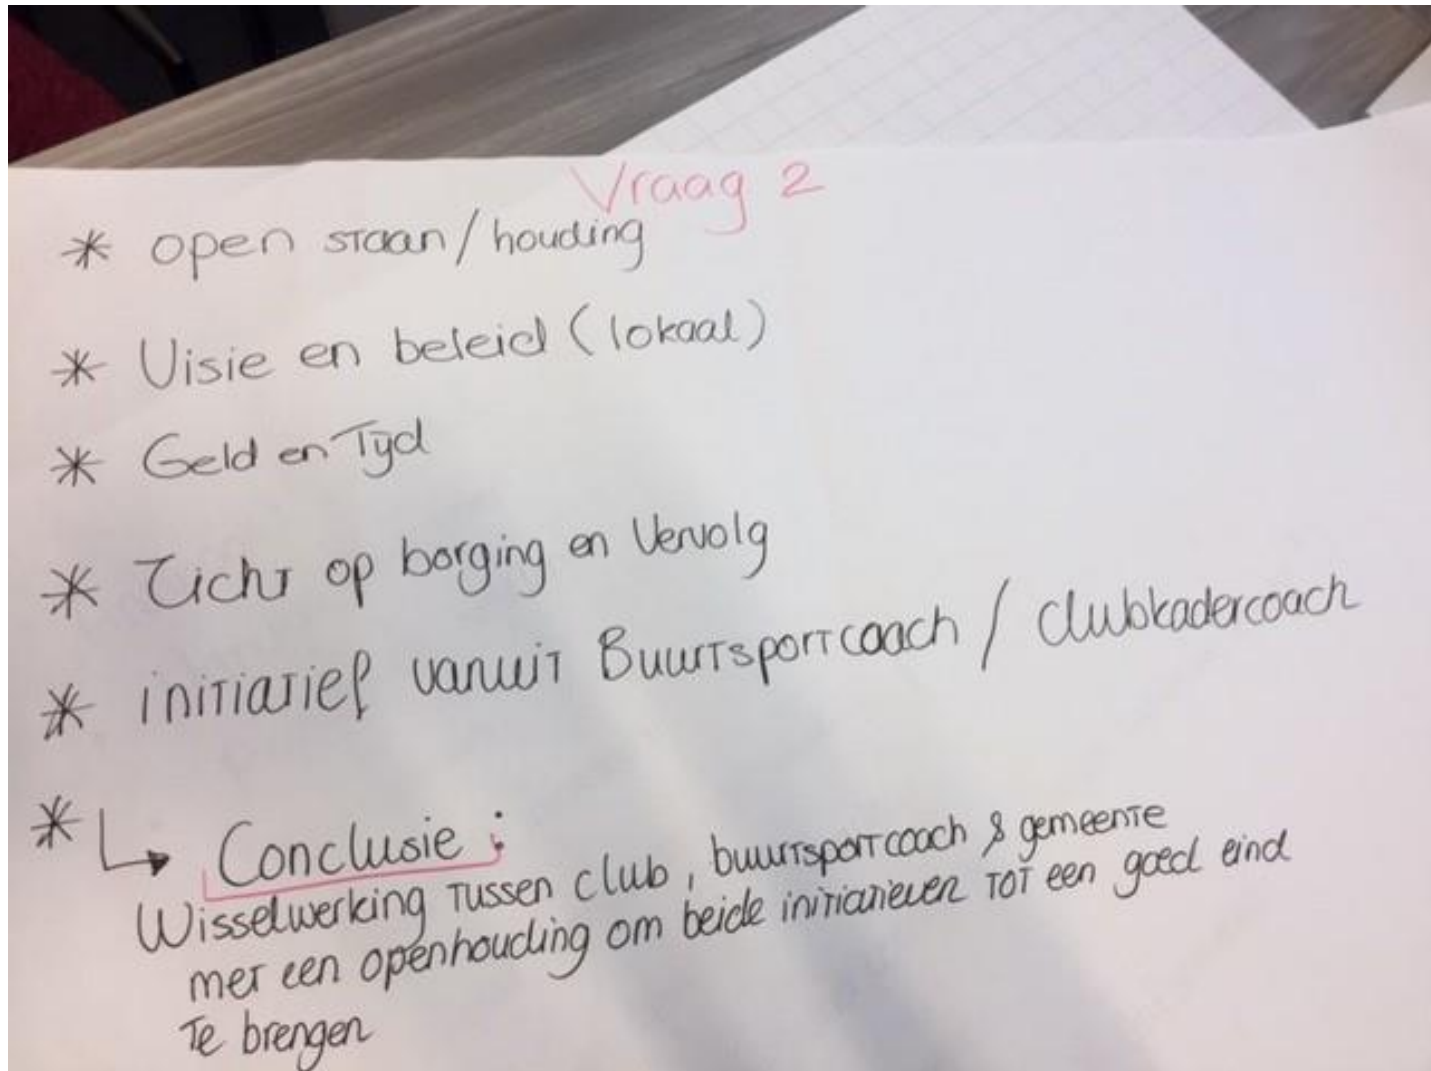 Vraag 2
* open staan/houding
* Visie en beleid (lokaal)
* Geld en Tijd
* Zicht op borging en Vervolg
* initiatief vanuit Buurtsportcoach / clubkadercoach
* ↳ Conclusie :
Wisselwerking tussen club, buurtsportcoach & gemeente
met een openhouding om beide initiatieven tot een goed eind
te brengen